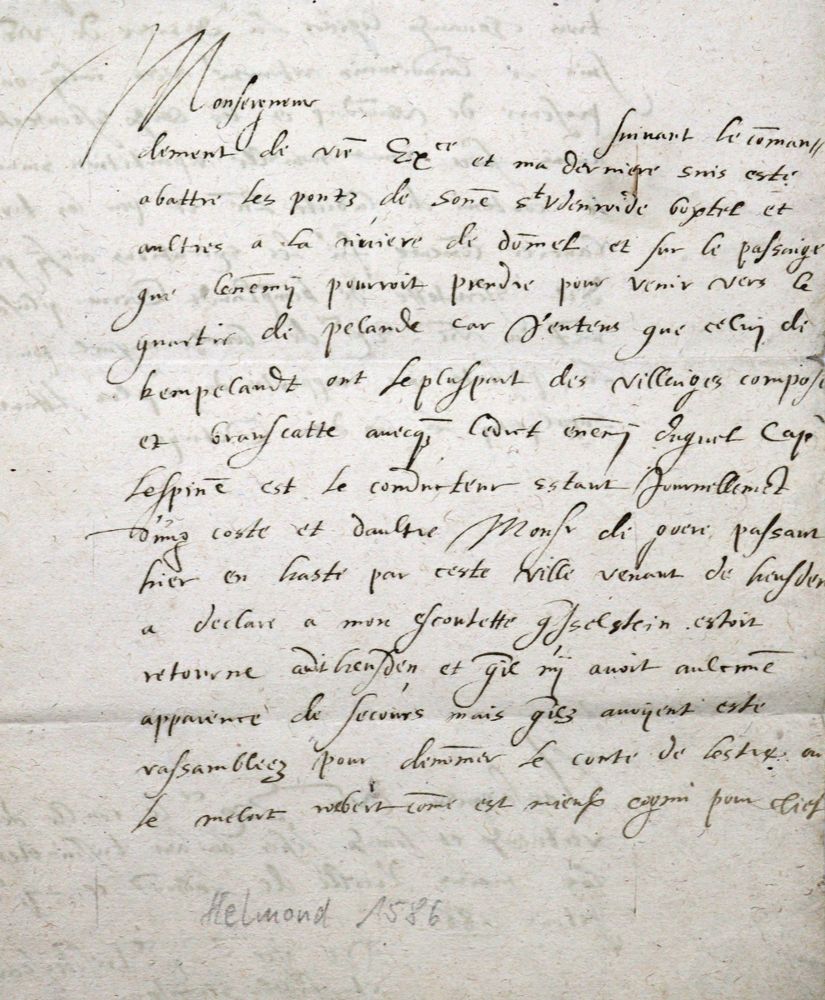 Monseigneur
suivant le com̄an//
dement de vrē Exce et ma derniere suis este
abattre les pontz de sonē st Udenrode boxtel et
aultres a la riviere de dōmel et sur le passaige
que lenēmij pourroit prendre pour venir vers le
quartir de pelande car J'entens que celuij de
kempelandt ont le pluspart des villaiges compose
et branscatte avecq̄ ledict enēmij duquel Capn
lespinē est le conducteur estant Journellemēt
d'ung coste et daultre Monsr de passant
hier en haste par ceste ville venant de heusden
a declare a mon escoutette q̄ Jsselstein estoit
retourne audit heusden et q̄il nij avoit aulcunē
apparence de secours mais q̄ilz avoijent este
rassambleez pour denōmer le conte de lestre ou
le robert com̄e est mieulx cognu pour chief
Helmond 1586